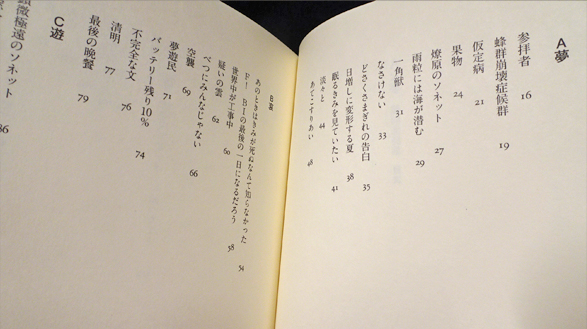 A夢
参拝者 16
蜂群崩壊症候群 19
仮定病 21
果物 24
燎原のソネット 27
雨粒には海が潜む 29
一角獣 31
なさけない 33
どさくさまぎれの告白 35
日増しに変形する夏 38
眠るきみを見ていたい 41
淡々と 44
あてこすりあい 48
あのときはきみが死ぬなんて知らなかった 54
F! BIの最後の一日になるだろう 58
世界中が工事中 60
疑いの雲 62
べつにみんなじゃない 66
空襲 69
夢遊民 71
バッテリー残り10% 74
不完全な文 76
清明 77
最後の晩餐 79
C遊
顕微極遠のソネット 86